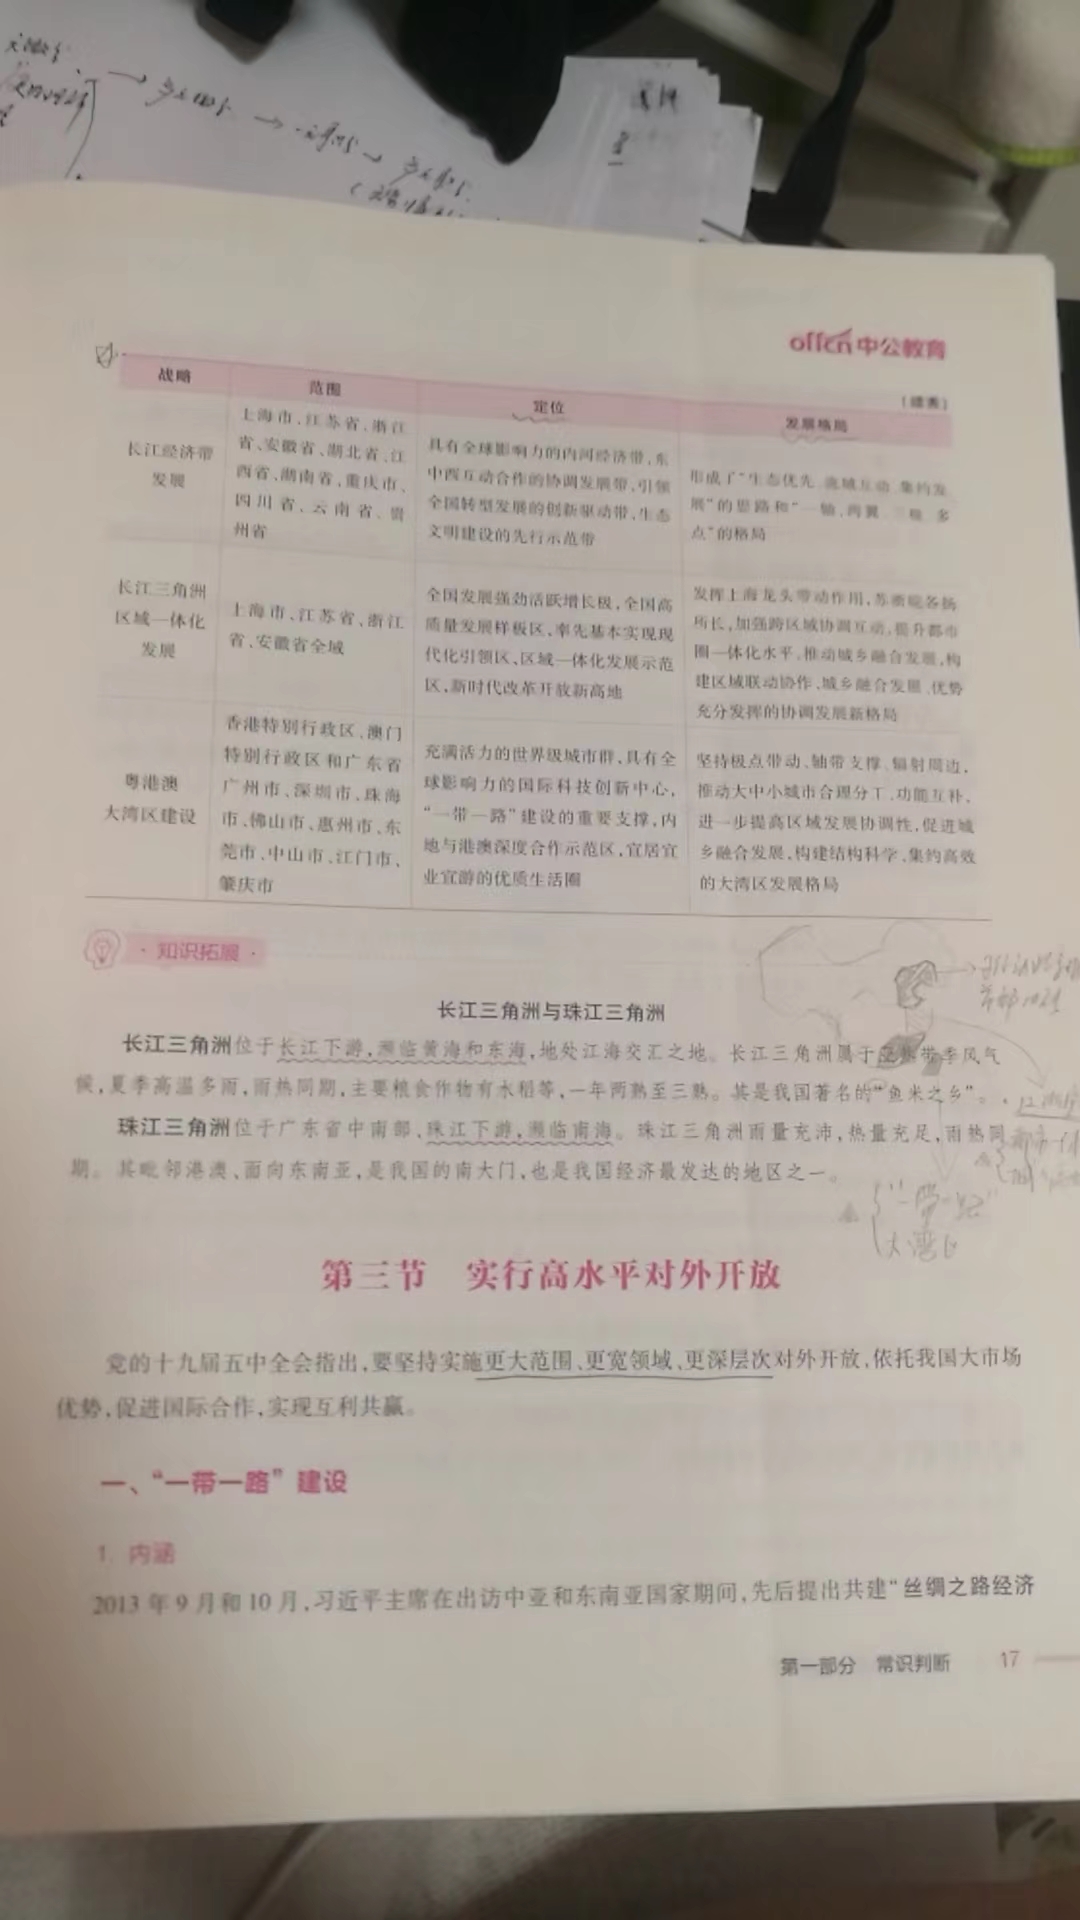 offcn中公教育
（续表）
战略
范围
定位
发展格局
长江经济带
发展
上海市、江苏省、浙江
省、安徽省、湖北省、江
西省、湖南省、重庆市、
四川省、云南省、贵
州省
具有全球影响力的内河经济带,东
中西互动合作的协调发展带,引领
全国转型发展的创新驱动带,生态
文明建设的先行示范带
形成了“生态优先、流域互动、集约发
展”的思路和“一轴、两翼、三极、多
点”的格局
长江三角洲
区域一体化
发展
上海市、江苏省、浙江
省、安徽省全域
全国发展强劲活跃增长极,全国高
质量发展样板区,率先基本实现现
代化引领区,区域一体化发展示范
区,新时代改革开放新高地
发挥上海龙头带动作用,苏浙皖各扬
所长,加强跨区域协调互动,提升都市
圈一体化水平,推动城乡融合发展,构
建区域联动协作、城乡融合发展、优势
充分发挥的协调发展新格局
粤港澳
大湾区建设
香港特别行政区、澳门
特别行政区和广东省
广州市、深圳市、珠海
市、佛山市、惠州市、东
莞市、中山市、江门市、
肇庆市
充满活力的世界级城市群,具有全
球影响力的国际科技创新中心,
“一带一路”建设的重要支撑,内
地与港澳深度合作示范区,宜居宜
业宜游的优质生活圈
坚持极点带动、轴带支撑、辐射周边,
推动大中小城市合理分工、功能互补,
进一步提高区域发展协调性,促进城
乡融合发展,构建结构科学、集约高效
的大湾区发展格局
·知识拓展·
长江三角洲与珠江三角洲
长江三角洲位于长江下游,濒临黄海和东海,地处江海交汇之地。长江三角洲属于亚热带季风气
候,夏季高温多雨,雨热同期,主要粮食作物有水稻等,一年两熟至三熟。其是我国著名的“鱼米之乡”。
珠江三角洲位于广东省中南部、珠江下游,濒临南海。珠江三角洲雨量充沛,热量充足,雨热同
期。其毗邻港澳、面向东南亚,是我国的南大门,也是我国经济最发达的地区之一。
“一带一路”
大湾区
第三节 实行高水平对外开放
党的十九届五中全会指出,要坚持实施更大范围、更宽领域、更深层次对外开放,依托我国大市场
优势,促进国际合作,实现互利共赢。
一、“一带一路”建设
1. 内涵
2013年9月和10月,习近平主席在出访中亚和东南亚国家期间,先后提出共建“丝绸之路经济
第一部分 常识判断 17